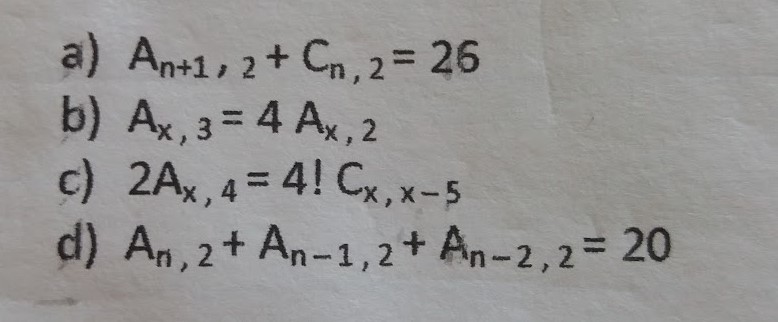 a) Aₙ₊₁, ₂ + Cₙ, ₂ = 26
b) Aₓ, ₃ = 4 Aₓ, ₂
c) 2Aₓ, ₄ = 4! Cₓ, ₓ₋₅
d) Aₙ, ₂ + Aₙ₋₁, ₂ + Aₙ₋₂, ₂ = 20